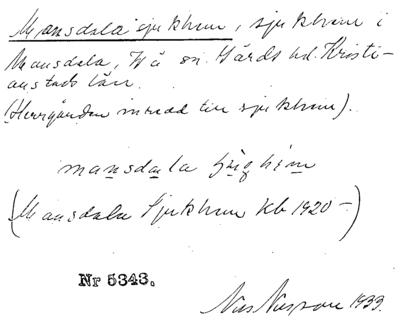 Mansdala sjukhem, sjukhem i
Mansdala, Vä sn. Gärds hd. Kristi-
anstads län.
(Herrgården inredd till sjukhem).
mansdala
(Mansdala Sjukhem Kb 1920-)
Nr 5343.
Nils 1933.